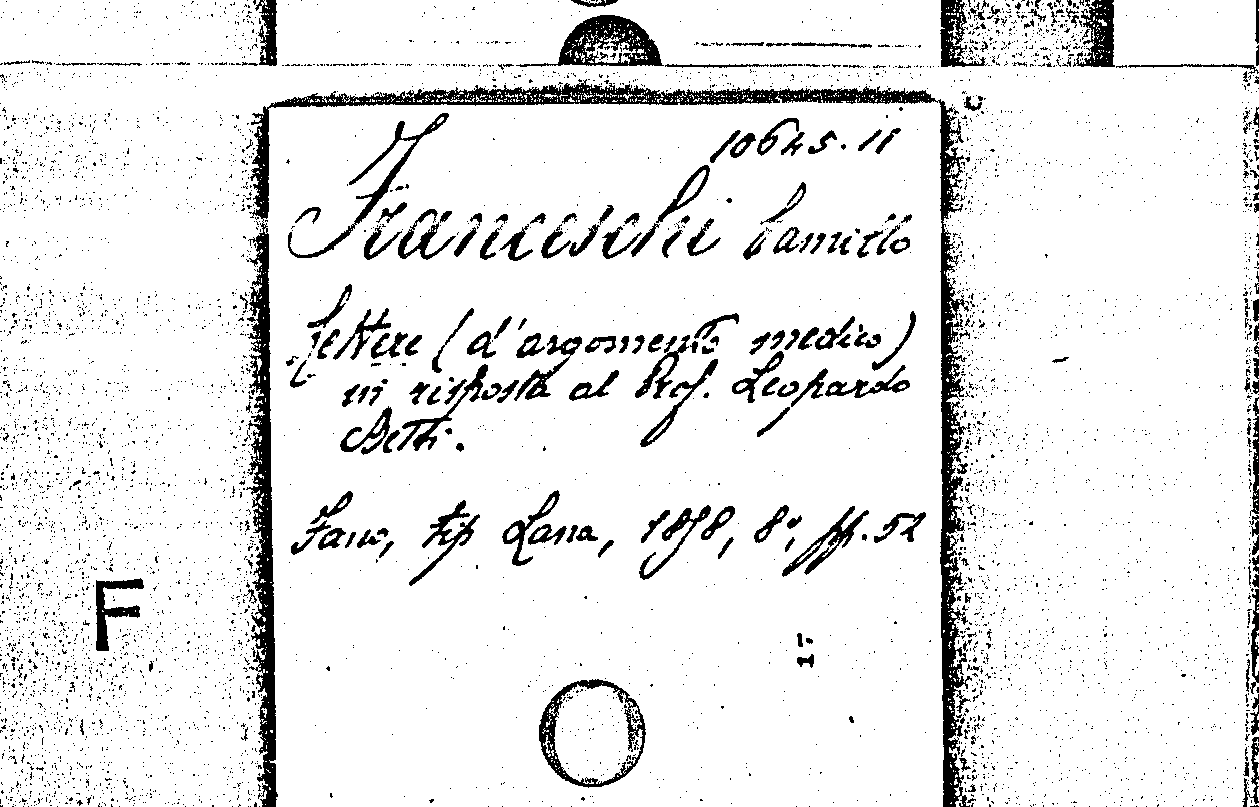 10645.11
Franceschi Camillo
Lettere (d'argomento medico)
in risposta al Prof. Leopardo
Betti.
Fano, tip Lana, 1858, 8°, pp. 52
F
17